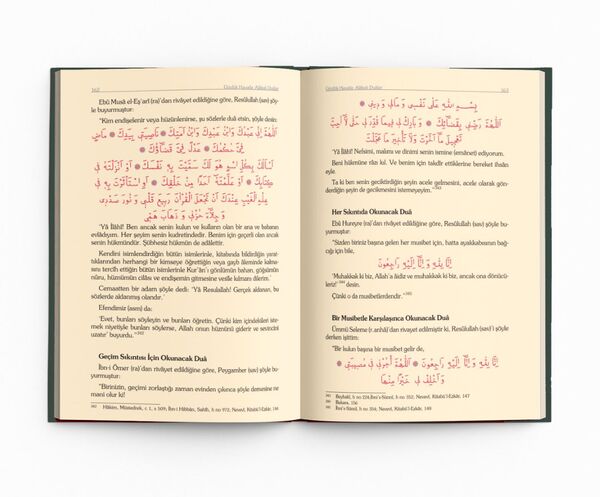 162
Günlük Hayatla Alâkalı Dualar
Ebû Musâ el-Eş'arî (ra)'dan rivâyet edildiğine göre, Resûlullah (sav) şöy-
le buyurmuştur:
"Kim endişelenir veya hüzünlenirse, şu sözlerle duâ etsin, şöyle desin:
اَللّٰهُمَّ اِنّ۪ي عَبْدُكَ وَابْنُ عَبْدِكَ وَابْنُ اَمَتِكَ ● نَاصِيَت۪ي بِيَدِكَ ● مَاضٍ
فِيَّ حُكْمُكَ ● عَدْلٌ فِيَّ قَضَاؤُكَ ●
اَسْأَلُكَ بِكُلِّ اسْمٍ هُوَ لَكَ سَمَّيْتَ بِهِ نَفْسَكَ ● اَوْ اَنْزَلْتَهُ ف۪ي
كِتَابِكَ ● اَوْ عَلَّمْتَهُ اَحَدًا مِنْ خَلْقِكَ ● اَوِ اسْتَأْثَرْتَ بِهِ ف۪ي
عِلْمِ الْغَيْبِ عِنْدَكَ اَنْ تَجْعَلَ الْقُرْاٰنَ رَب۪يعَ قَلْب۪ي وَ نُورَ صَدْر۪ي
وَ جِلَاءَ حُزْن۪ي وَ ذَهَابَ هَمّ۪ي
'Yâ İlâhî! Ben ancak senin kulun ve kulların olan bir ana ve babanın
evlâdıyım. Her şeyim senin kudretindedir. Benim için geçerli olan ancak
senin hükmündür. Şüphesiz hükmün de adâlettir.
Kendini isimlendirdiğin bütün isimlerinle, kitabında bildirdiğin yarat-
tıklarından herhangi bir kimseye öğrettiğin veya gayb âleminde kalma-
sını tercih ettiğin bütün isimlerinle Kur'ân'ı gönlümün baharı, göğsümün
nûru, hüzmümün cilâsı ve endişemin gitmesine vesile kılmanı dilerim.'
Cemaatten bir adam şöyle dedi: 'Yâ Resulallah! Gerçek aldanan, bu
sözlerde aldanmış olandır.'
Efendimiz (asm) da:
'Evet, bunları söyleyin ve bunları öğretin. Çünkü kim içindekileri iste-
mek niyetiyle bunları söylerse, Allah onun hüznünü giderir ve sevincini
uzatır' buyurdu."³⁴²
Geçim Sıkıntısı İçin Okunacak Duâ
İbn-i Ömer (ra)'dan rivâyet edildiğine göre, Peygamber (sav) şöyle bu-
yurmuştur:
"Birinizin, geçimi zorlaştığı zaman evinden çıkınca şöyle demesine ne
mani olur ki!
342 Hâkim, Müstedrek, c. 1, s 509; İbn-i Hibbân, Sahîh, h no 972; Nevevî, Kitâbü'l-Ezkâr, 146
Günlük Hayatla Alâkalı Dualar
163
بِسْمِ اللّٰهِ عَلٰى نَفْس۪ي وَ مَال۪ي وَ د۪ين۪ي ●
اَللّٰهُمَّ رَضِّن۪ي بِقَضَائِكَ ● وَ بَارِكْ ل۪ي ف۪يمَا قُدِّرَ ل۪ي حَتّٰى لَا اُحِبَّ
تَعْج۪يلَ مَا اَخَّرْتَ وَلَا تَأْخ۪يرَ مَا عَجَّلْتَ
'Yâ İlâhî! Nefsimi, malımı ve dinimi senin ismine (emânet) ediyorum.
Beni hükmüne râzı kıl. Ve benim için takdir ettiklerine bereket ihsân
eyle.
Ta ki ben senin geciktirdiğin şeyin acele gelmesini, acele olarak gön-
derdiğin şeyin de gecikmesini istemeyeyim."³⁴³
Her Sıkıntıda Okunacak Duâ
Ebû Hureyre (ra)'dan rivâyet edildiğine göre, Resûlullah (sav) şöyle bu-
yurmuştur:
"Sizden biriniz başına gelen her musibet için, hatta ayakkabısının bağ-
cığı için bile,
اِنَّا لِلّٰهِ وَ اِنَّا اِلَيْهِ رَاجِعُونَ
'Muhakkak ki biz, Allah'a âidiz ve muhakkak ki biz, ancak ona dönücü-
leriz!'³⁴⁴ desin.
Çünkü o da musibetlerdendir."³⁴⁵
Bir Musibetle Karşılaşınca Okunacak Duâ
Ümmü Seleme (r.anhâ)'dan rivâyet edilmiştir ki, Resûlullah (sav)'i şöyle
derken işittim:
"Bir kulun başına bir musibet gelir de,
اِنَّا لِلّٰهِ وَ اِنَّا اِلَيْهِ رَاجِعُونَ ● اَللّٰهُمَّ اْجُرْن۪ي ف۪ي مُص۪يبَت۪ي ●
وَ اَخْلِفْ ل۪ي خَيْرًا مِنْهَا
343 Beyhakî, h no 224;İbnü's-Sünnî, h no 352; Nevevî, Kitâbü'l-Ezkâr, 147
344 Bakara, 156
345 İbnü's-Sünnî, h no 354; Nevevî, Kitâbü'l-Ezkâr, 149